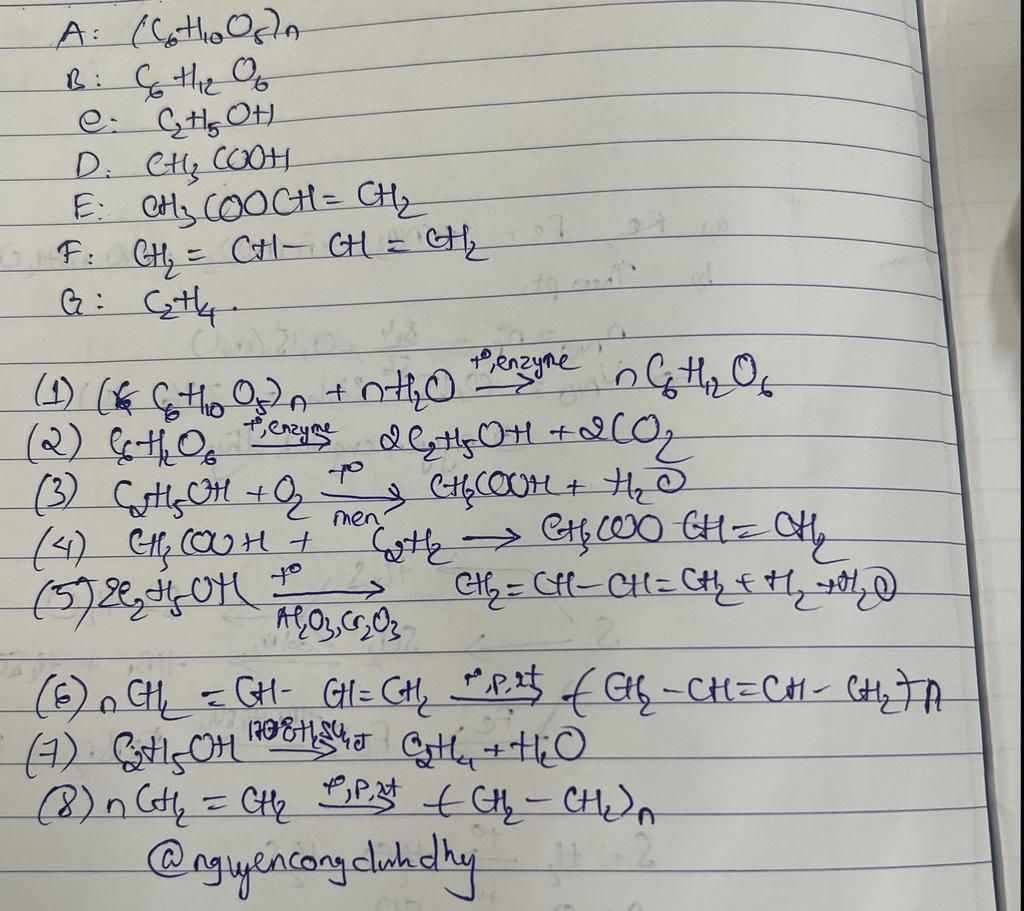 A: (C6H10O5)n
B: C6H12O6
C: C2H5OH
D: CH3COOH
E: CH3COOCH=CH2
F: CH2=CH-CH=CH2
G: C2H4.
(1) (C6H10O5)n + nH2O t°, enzyme → nC6H12O6
(2) C6H12O6 t°, enzyme → 2C2H5OH + 2CO2
(3) C2H5OH + O2 t° → men CH3COOH + H2O
(4) CH3COOH + C2H2 → CH3COOCH=CH2
(5) 2C2H5OH t° → Al2O3, Cr2O3 CH2=CH-CH=CH2 + H2 + H2O
(6) nCH2=CH-CH=CH2 t°, P, xt → (CH2-CH=CH-CH2)n
(7) C2H5OH 170°C H2SO4 đ → C2H4 + H2O
(8) nCH2=CH2 t°, P, xt → (CH2-CH2)n